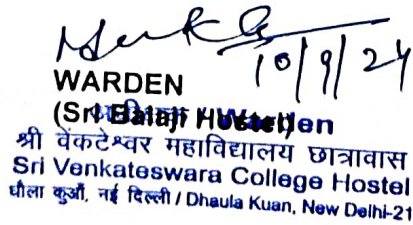 10/9/24
WARDEN
(Sri Balaji Hostel)
/ Warden
श्री वेंकटेश्वर महाविद्यालय छात्रावास
Sri Venkateswara College Hostel
धौला कुआँ, नई दिल्ली / Dhaula Kuan, New Delhi-21